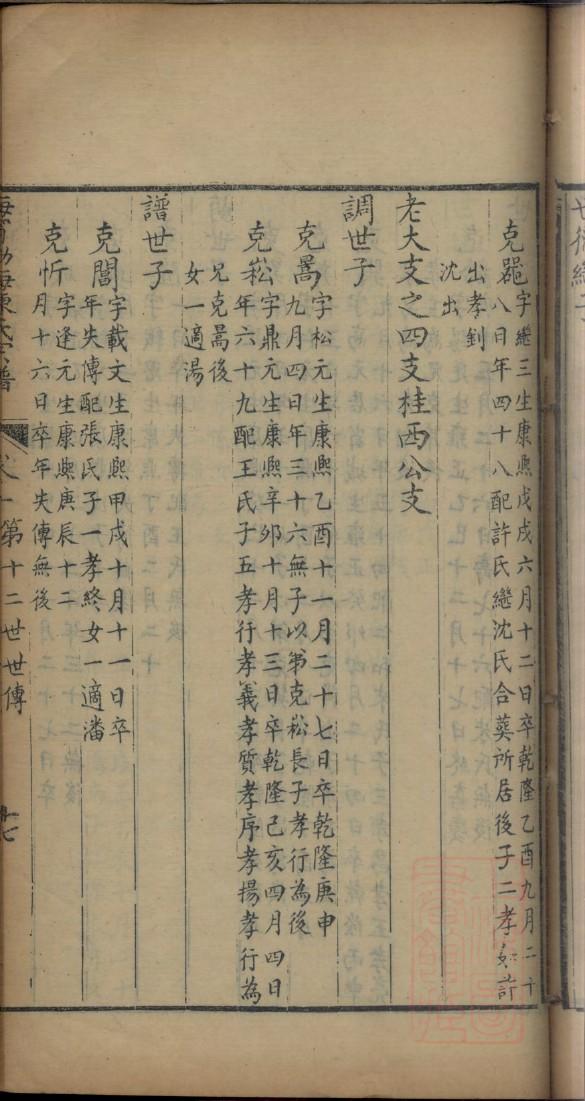 克毈字繼三生康熙戊戌六月十二日卒乾隆乙酉九月二十
八日年四十八配許氏繼沈氏合葬所居後子二孝 許
出孝釗
沈出
老大支之四支桂西公支
調世子
克暠字松元生康熙乙酉十一月二十七日卒乾隆庚申
九月四日年三十六無子以弟克崧長子孝行為後
克崧字鼎元生康熙辛卯十月十三日卒乾隆己亥四月四日
年六十九配王氏子五孝行孝義孝質孝序孝揚孝行為
兄克暠後
女一適湯
譜世子
克闇字載文生康熙甲戌十月十一日卒
年失傳配張氏子一孝終女一適潘
克忻字逢元生康熙庚辰十二
月十六日卒年失傳無後
卷一第十二世世傳
十七